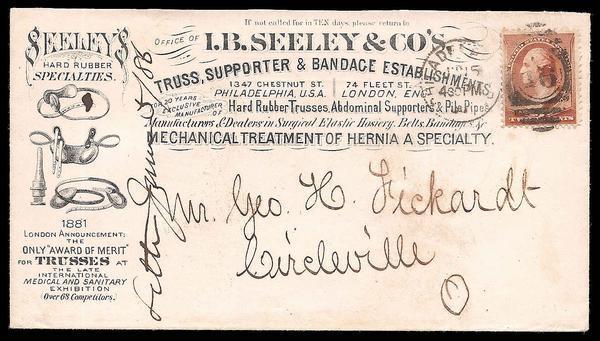 If not called for in TEN days, please return to
OFFICE OF I.B. SEELEY & CO'S
TRUSS, SUPPORTER & BANDAGE ESTABLISHMENTS,
1347 CHESTNUT ST. 74 FLEET ST.
PHILADELPHIA, U.S.A. LONDON, ENG.
FOR 20 YEARS
EXCLUSIVE
MANUFACTURER
OF
Hard Rubber Trusses, Abdominal Supporters & Pile Pipes
Manufacturers & Dealers in Surgical Elastic Hosiery, Belts, Bandages &c
MECHANICAL TREATMENT OF HERNIA A SPECIALTY.
SEELEY'S
HARD RUBBER
SPECIALTIES.
1881
LONDON ANNOUNCEMENT:
THE
ONLY "AWARD OF MERIT"
FOR TRUSSES AT
THE LATE
INTERNATIONAL
MEDICAL AND SANITARY
EXHIBITION
(Over 68 Competitors.)
Mr. Geo. H. Fickardt
Circleville
1